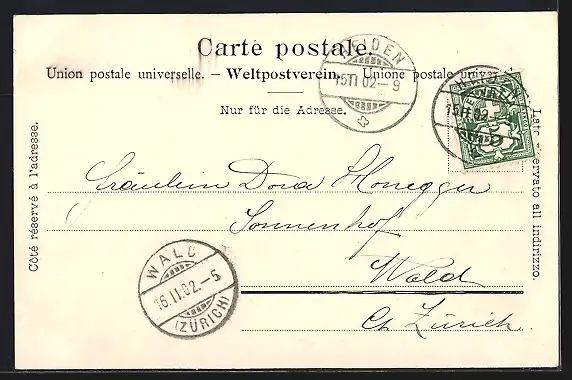 Carte postale.
Union postale universelle. – Weltpostverein. – Unione postale
Nur für die Adresse.
Côté réservé à l'adresse.
Lato riservato all indirizzo.
HEIDEN
15 II 02 – 9
15 II 02
Fräulein Dora Honegger
Sonnenhof
Wald
Ct. Zürich.
WALD
16.II.02.–5
(ZÜRICH)